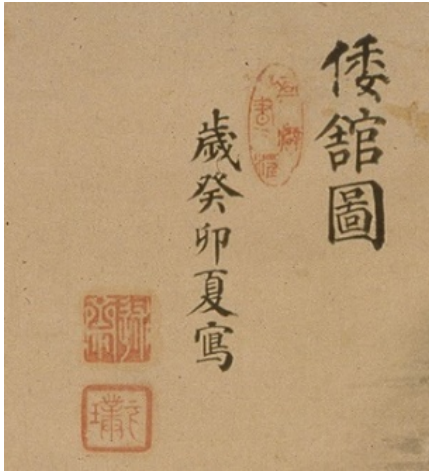 倭舘圖
歲癸卯夏寫